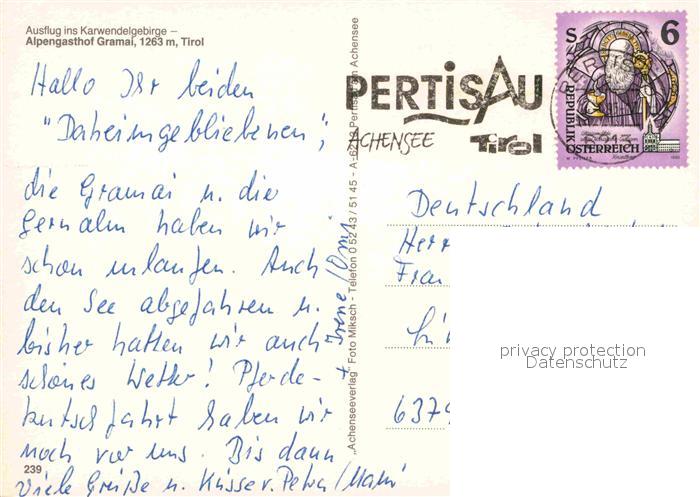 Ausflug ins Karwendelgebirge –
Alpengasthof Gramai, 1263 m, Tirol
Hallo Ihr beiden
"Daheimgebliebenen",
die Gramai u. die
Gernalm haben wir
schon umlaufen. Auch
den See abgefahren u.
bisher hatten wir auch
schönes Wetter! Pferde-
kutschfahrt haben wir
noch vor uns. Bis dann
Viele Grüße u. Küsse v. Petra / Mami
+ Irene / Oma
239
"Achenseeverlag" Foto Miksch - Telefon 0 52 43 / 51 45 - A-6213 Pertisau am Achensee
PERTISAU
ACHENSEE Tirol
S 6
REPUBLIK
ÖSTERREICH
Deutschland
Herr
Frau
637
privacy protection
Datenschutz